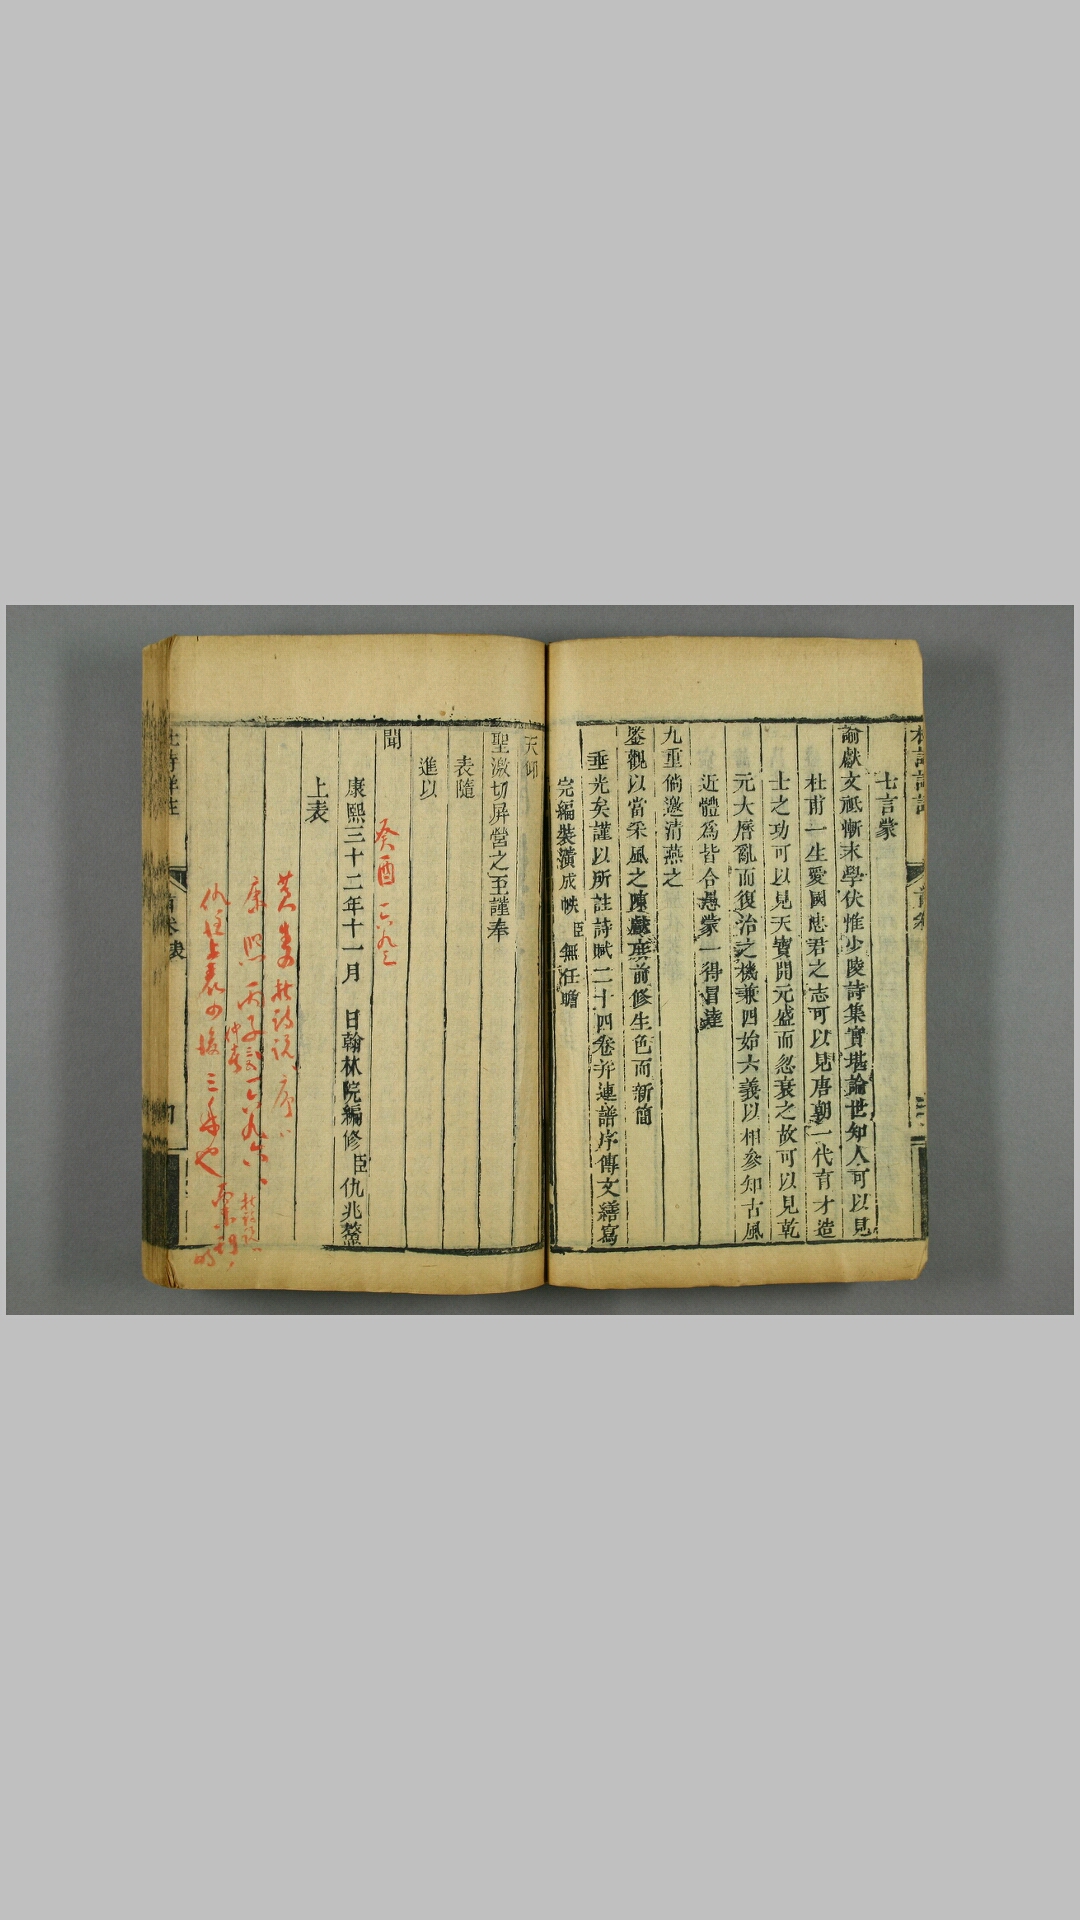 七言蒙
諭獻文祗慚末學伏惟少陵詩集實堪論世知人可以見
杜甫一生愛國忠君之志可以見唐朝一代育才造
士之功可以見天寶開元盛而忽衰之故可以見乾
元大曆亂而復治之機兼四始六義以相參知古風
近體爲皆合愚蒙一得冒達
九重倘邀清燕之
鑒觀以當采風之陳獻庶前修生色而新簡
垂光矣謹以所註詩賦二十四卷弁連譜序傳文繕寫
完編裝潢成帙臣無任瞻
天仰
聖激切屏營之至謹奉
表隨
進以
聞
癸酉 一六九三
康熙三十二年十一月 日翰林院編修臣仇兆鰲
上表
黃生杜詩說序
康熙丙子 一六九六
仇註上表の後三年や